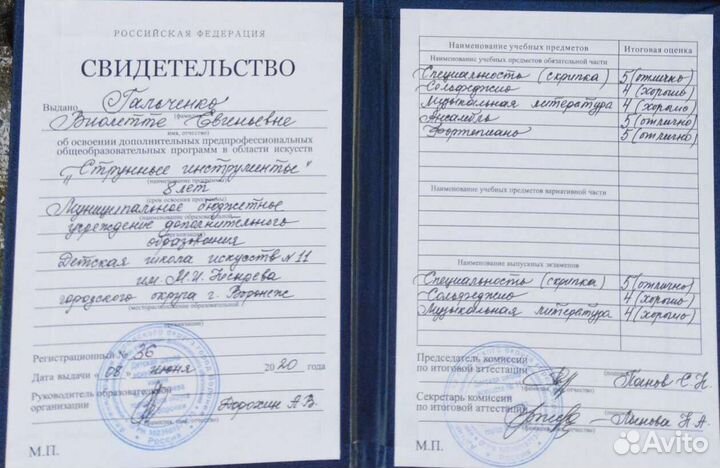 РОССИЙСКАЯ ФЕДЕРАЦИЯ
СВИДЕТЕЛЬСТВО
Выдано Гальченко
(фамилия)
Виолетте Евгеньевне
имя, отчество)
об освоении дополнительных предпрофессиональных
общеобразовательных программ в области искусств
"Струнные инструменты"
(наименование программы)
8 лет
(срок освоения программы)
Муниципальное бюджетное
(наименование образовательной
учреждение дополнительного
организации)
образования
Детская школа искусств №11
им. М.И.
городского округа г. Воронеж
(месторасположение образовательной
организации)
Регистрационный № 36
Дата выдачи «08» июня 2020 года
Руководитель образовательной
организации Дорохин А.В.
(подпись) (фамилия, имя, отчество)
М.П.
Наименование учебных предметов Итоговая оценка
Наименование учебных предметов обязательной части
Специальность (скрипка) 5 (отлично)
Сольфеджио 4 (хорошо)
Музыкальная литература 4 (хорошо)
Ансамбль 5 (отлично)
Фортепиано 5 (отлично)
Наименование учебных предметов вариативной части
Наименование выпускных экзаменов
Специальность (скрипка) 5 (отлично)
Сольфеджио 4 (хорошо)
Музыкальная литература 4 (хорошо)
Председатель комиссии
по итоговой аттестации Панов С.Н.
(подпись) (фамилия, имя, отчество)
Секретарь комиссии
по итоговой аттестации Панова Н.А.
(подпись) (фамилия, имя, отчество)
М.П.
Avito